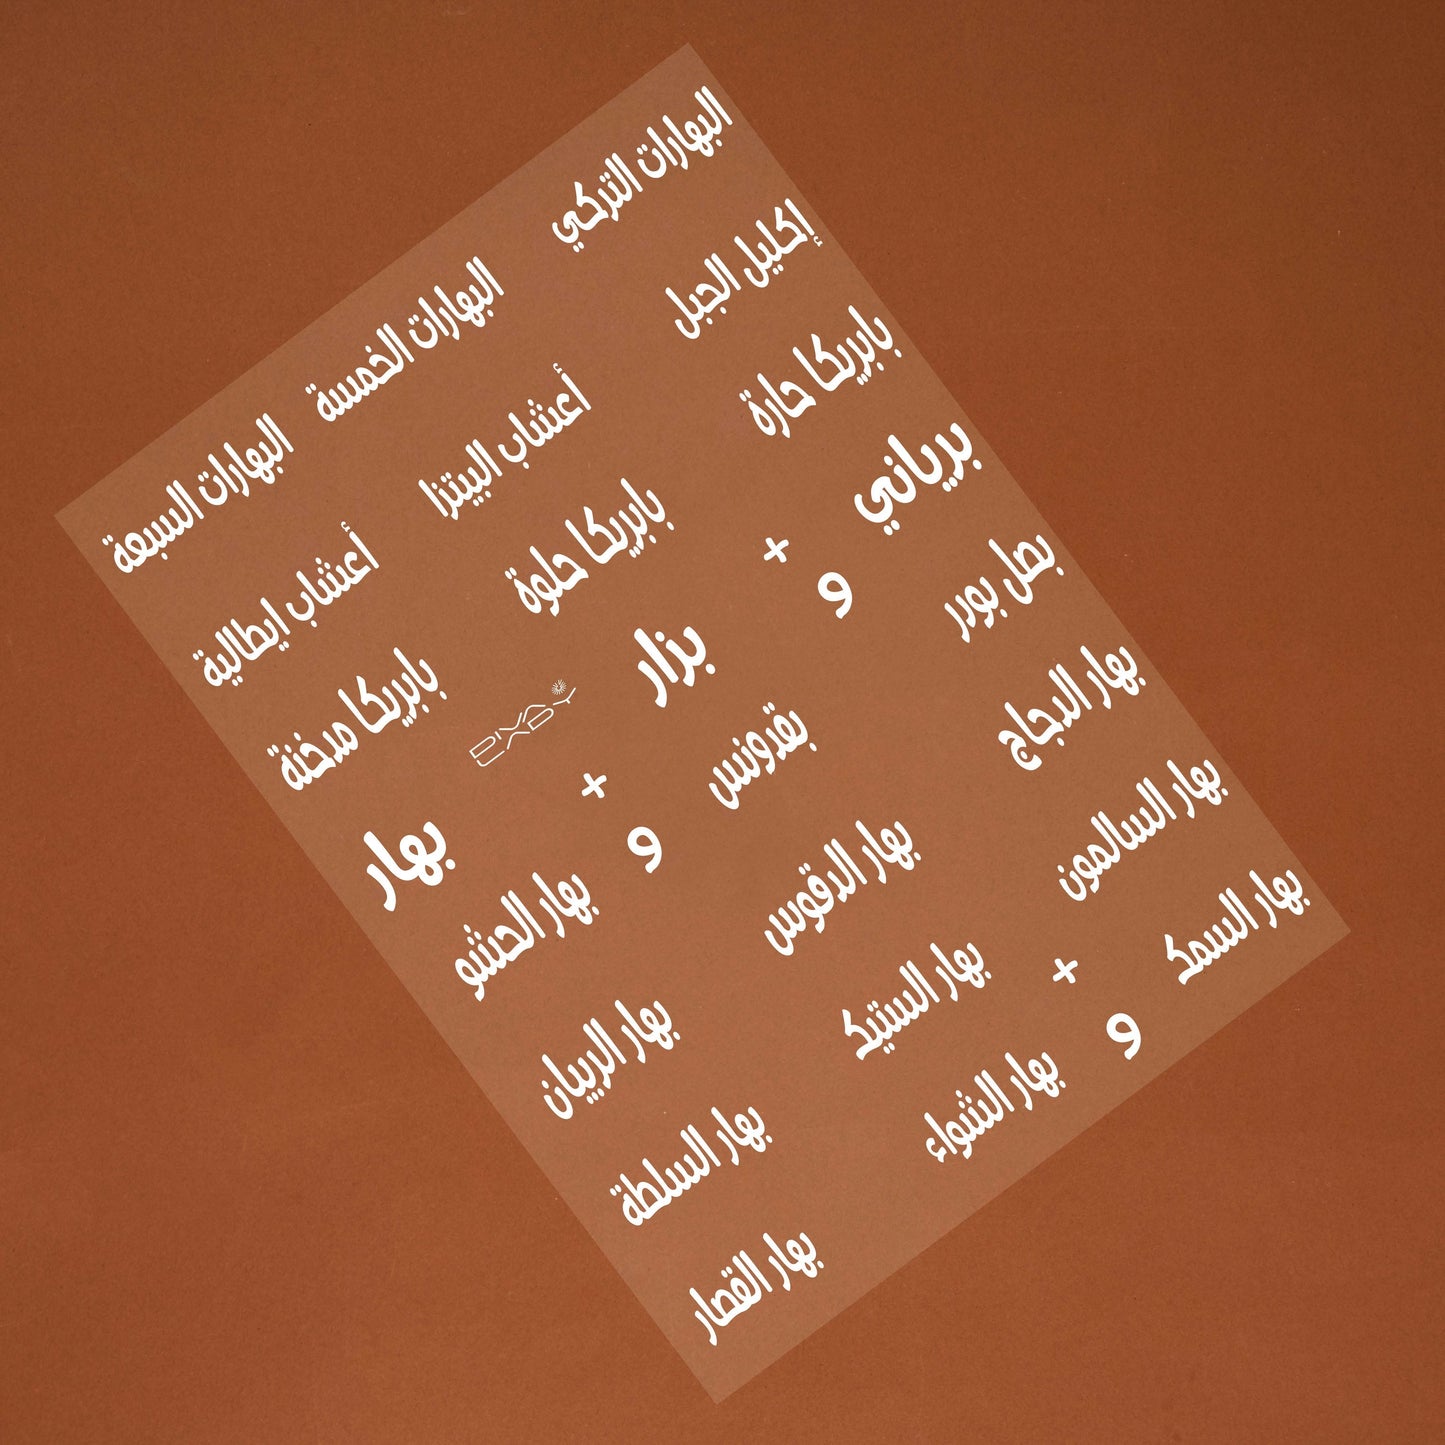 البهارات التركي
البهارات الخمسة
البهارات السبعة
إكليل الجبل
أعشاب البيتزا
أعشاب إيطالية
بابريكا حارة
بابريكا حلوة
بابريكا مدخنة
برياني
+
و
بزار
DIVA LADY
+
و
بهار
بصل بودر
بقدونس
بهار الحشو
بهار الدجاج
بهار الدقوس
بهار الربيان
بهار السالمون
بهار الستيك
بهار السلطة
بهار السمك
+
و
بهار الشواء
بهار القصار